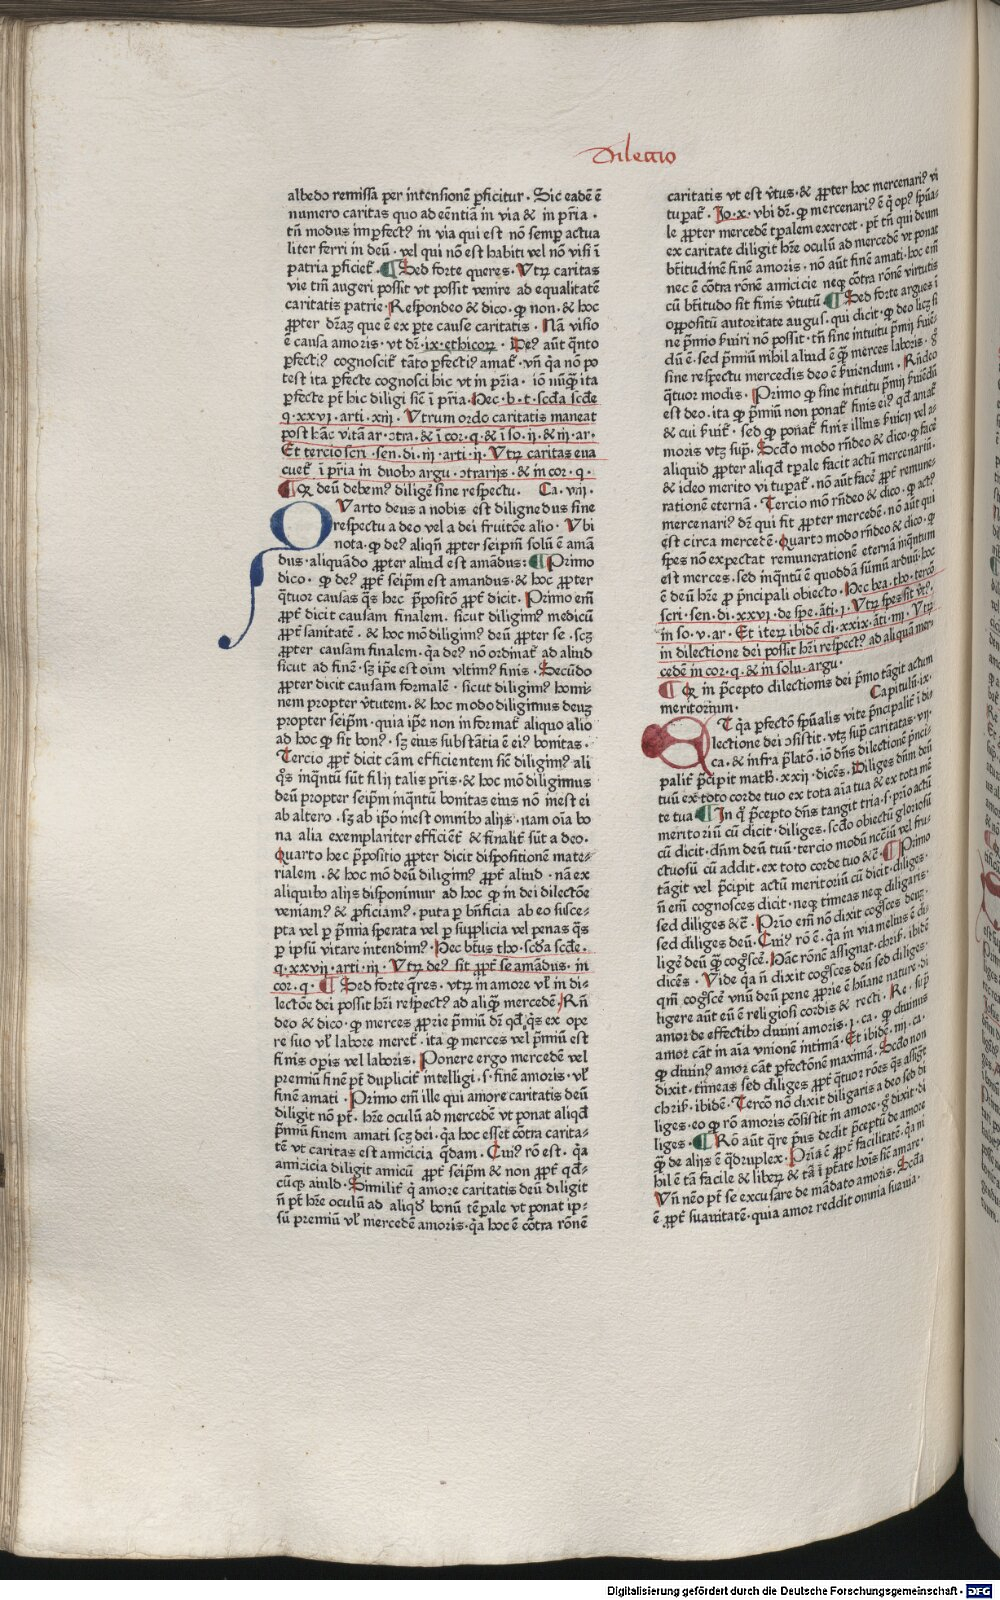 Dilectio
albedo remissa per intensionē ꝑficitur. Sic eadē ē
numero caritas quo ad eēntiā in via & in pr̄ia.
tn̄ modus imꝑfectꝰ in via qui est nō semꝑ actua
liter ferri in deū. vel qui nō est habiti vel nō visi ī
patria ꝑficiet̄. ¶ Sed forte queres. Utrꝫ caritas
vie tm̄ augeri possit vt possit venire ad equalitatē
caritatis patrie. Respondeo & dico. ꝙ non. & hoc
ꝓpter dr̄aꝫ que ē ex ꝑte cause caritatis. Nā visio
ē causa amoris. vt dr̄. ix. ethicoꝝ. Deꝰ aūt q̄nto
ꝑfectiꝰ cognoscit̄ tāto ꝑfectiꝰ amat̄. vn̄ q̇a nō po
test ita ꝑfecte cognosci hic vt in pr̄ia. iō nūq̄ ita
ꝑfecte pt̄ hic diligi sic̄ ī pr̄ia. Hec. b. t. scd̄a scd̄e
q. xxvi. arti. xiii. Utrum ordo caritatis maneat
post hāc vitā ar. ↄtra. & ī cor. q. & ī so. ii. & iii. ar.
Et tercio scri. sen. di. iii. arti. ii. Utrꝫ caritas eua
cuet̄ ī pr̄ia in duobꝰ argu. ↄtrariis. & in cor. q.
¶ Qꝫ deū debemꝰ diligẽ sine respectu. Ca. viii.
QUarto deus a nobis est diligēdus sine
respectu a deo vel a dei fruitōe alio. Ubi
nota. ꝙ deꝰ aliqn̄ ꝓpter seipm̄ solū ē amā
dus. aliquādo ꝓpter aliud est amādus: ¶ Primo
dico. ꝙ deꝰ ꝓpt̄ seipm̄ est amandus. & hoc ꝓpter
q̄tuor causas q̄s hec p̄positō ꝓpt̄ dicit. Primo em̄
ꝓpt̄ dicit causam finalem. sicut diligimꝰ medicū
ꝓpt̄ sanitatē. & hoc mō diligimꝰ deū ꝓpter se. scꝫ
ꝓpter causam finalem. q̇a deꝰ nō ordinat̄ ad aliud
sicut ad finē. sꝫ ip̄e est oīm vltimꝰ finis. Secūdo
ꝓpter dicit causam formalē. sicut diligimꝰ homi-
nem propter v̄tutem. & hoc modo diligimus deuꝫ
propter seipm̄. quia ip̄e non informat̄ aliquo alio
ad hoc ꝙ sit bonꝰ. sꝫ eius substātia ē eiꝰ bonitas.
Tercio ꝓpt̄ dicit cām efficientem sic̄ diligimꝰ ali
q̊s inq̄ntū sūt filij talis pr̄is. & hoc mō diligimus
deū propter seipm̄ inq̄ntū bonitas eius nō inest ei
ab altero. sꝫ ab ip̄o inest omnibꝰ alijs. nam oīa bo
na alia exemplariter efficiēt̄ & finalit̄ sūt a deo.
Quarto hec p̄positio ꝓpter dicit dispositionē mate-
rialem. & hoc mō deū diligimꝰ ꝓpt̄ aliud. nā ex
aliquibꝰ alijs disponimur ad hoc ꝙ in dei dilectōe
veniamꝰ & ꝓficiamꝰ. puta ꝑ bn̄ficia ab eo susce-
pta vel ꝑ p̄mia sperata vel ꝑ supplicia vel penas q̄s
ꝑ ipsū vitare intendimꝰ. Hec bt̄us tho. scd̄a scd̄e.
q. xxvii. arti. iii. Utrꝫ deꝰ sit ꝓpt̄ se amādus. in
cor. q. ¶ Sed forte q̄res. vtrꝫ in amore vl̄ in di-
lectōe dei possit hr̄i respectꝰ ad aliq̄ mercedē. Rn̄
deo & dico. ꝙ merces ꝓprie p̄miū dr̄ qd̄ q̇s ex ope
re suo vl̄ labore meret̄. ita ꝙ merces vel p̄miū est
finis opis vel laboris. Ponere ergo mercedē vel
premiū finē pt̄ duplicit̄ intelligi. s. finē amoris. vl̄
finē amati. Primo em̄ ille qui amore caritatis deū
diligit nō pt̄. hr̄e oculū ad mercedē vt ponat aliqd̄
p̄miū finem amati scꝫ dei. q̇a hoc esset cōtra carita-
tē vt caritas est amicicia q̄dam. Cuiꝰ rō est. q̇a
amicicia diligit amicū ꝓpt̄ seipm̄ & non ꝓpt̄ qd̄-
cūqꝫ aliud. Similit̄ q̇ amore caritatis deū diligit
n̄ pt̄ hr̄e oculū ad aliqd̄ bonū tēpale vt ponat ip-
sū premiū vl̄ mercedē amoris. q̇a hoc ē cōtra rōnē
caritatis vt est v̄tus. & ꝓpter hoc mercenariꝰ vi
tupat̄. Jo. x. vbi dr̄. ꝙ mercenariꝰ ē q̇ opꝰ spūa-
le ꝓpter mercedē tꝑalem exercet. pt̄ tn̄ qui deum
ex caritate diligit hr̄e oculū ad mercedē vt ponat
bt̄itudinē finē amoris. nō aūt finē amati. hoc em̄
nec ē cōtra rōnē amicicie neqꝫ cōtra rōnē virtutis
cū bt̄itudo sit finis v̄tutū. ¶ Sed forte argues ī
oppositū autoritate augus. qui dicit. ꝙ deo licꝫ si
ne p̄mio ẜuiri nō possit. tn̄ sine intuitu p̄mij ẜuiē-
dū ē. sed p̄miū nihil aliud ē q̄ merces laboris. g̊
sine respectu mercedis deo ē ẜuiendum. Rn̄deo
q̄tuor modis. Primo ꝙ sine intuitu p̄mij ẜuiēdū
est deo. ita ꝙ p̄miū non ponat̄ finis eiꝰ qd̄ amat̄
& cui ẜuit̄. sed ꝙ ponat̄ finis illius ẜuicij vel a-
moris vtꝫ supͣ. Scd̄o modo rn̄deo & dico. ꝙ facē
aliquid ꝓpter aliqd̄ tꝑale facit actū mercenariū.
& ideo merito vitupat̄. nō aūt facē ꝓpt̄ remune-
rationē eternā. Tercio mō rn̄deo & dico. ꝙ actꝰ
mercenariꝰ dr̄ qui fit ꝓpter mercedē. nō aūt qui
est circa mercedē. Quarto modo rn̄deo & dico. ꝙ
spes nō expectat remunerationē eternā inq̄ntum
est merces. sed inq̄ntū ē quoddā sūmū arduū. hoc
ē deū hr̄e ꝓ p̄ncipali obiecto. Hec bea. tho. tercō
scri. sen. di. xxvi. de spe. āti. j. Utrꝫ spes sit v̄tꝰ.
in so. v. ar. Et iterꝫ ibidē di. xxix. āti. iii. Utrꝫ
in dilectione dei possit hr̄i respectꝰ ad aliquā mer-
cedē in cor. q. & in solu. argu.
¶ Qꝫ in p̄cepto dilectionis dei p̄mo tāgit actum
meritorium. Capitulū. ix.
ET q̇a ꝑfectō spūalis vite p̄ncipalit̄ ī di-
lectione dei ↄsistit. vtꝫ supͣ caritatas. vii.
ca. & infra p̄latō. iō dn̄s dilectionē p̄nci-
palit̄ p̄cipit math. xxii. dicēs. Diliges dn̄m deū
tuū ex toto corde tuo ex tota aīa tua & ex tota mē
te tua ¶ In q̊ p̄cepto dn̄s tangit tria. s. p̄io actū
meritoriū cū dicit. diliges. scd̄o obiectū gloriosū
cū dicit. dn̄m deū tuū. tercio modū nc̄ciū vel fru-
ctuosū cū addit. ex toto corde tuo &c̄. ¶ Primo
tāgit vel p̄cipit actū meritoriū cū dicit. diliges.
n̄ em̄ cognosces dicit. neqꝫ timeas neqꝫ diligaris.
sed diliges &c̄. Prio em̄ nō dixit cogsces deuꝫ.
sed diliges deū. Cuiꝰ rō ē. q̇a in via melius ē di-
ligẽ deū q̄ cogscẽ. Hāc rōnē assignat. chris. ibidē
dicēs. Vide q̇a n̄ dixit cogsces deū sed diliges.
qm̄ cogscẽ vnū deū pene ꝓprie ē hūane nature. di
ligere aūt eū ē religiosi cordis & recti. Re. supͣ
amor de effectibꝰ diuini amoris. j. ca. ꝙ diuinus
amor cāt in aīa vnionē intimā. Et ibidē. iii. ca.
ꝙ diuinꝰ amor cāt ꝑfectōnē maximā. Scd̄o non
dixit. timeas sed diliges ꝓpt̄ q̄tuor rōes q̄s assigt̄
chris. ibidē. Tercō nō dixit diligaris a deo sed di
liges. eo ꝙ rō amoris cōsistit in amore. g̊ dixit. di
liges. ¶ Rō aūt q̄re p̄us dedit p̄ceptū de amore
q̄ de aliis ē q̄druplex. Pria ē ꝓpt̄ facilitatē. q̇a ni
hil ē tā facile & liberꝫ & tā ī pt̄ate hoīs sic̄ amare.
Vn̄ nēo pt̄ se excusare de mādato amoris. Scd̄a
ē ꝓpt̄ suauitatē. quia amor reddit omnia suauia.
Digitalisierung gefördert durch die Deutsche Forschungsgemeinschaft - DFG